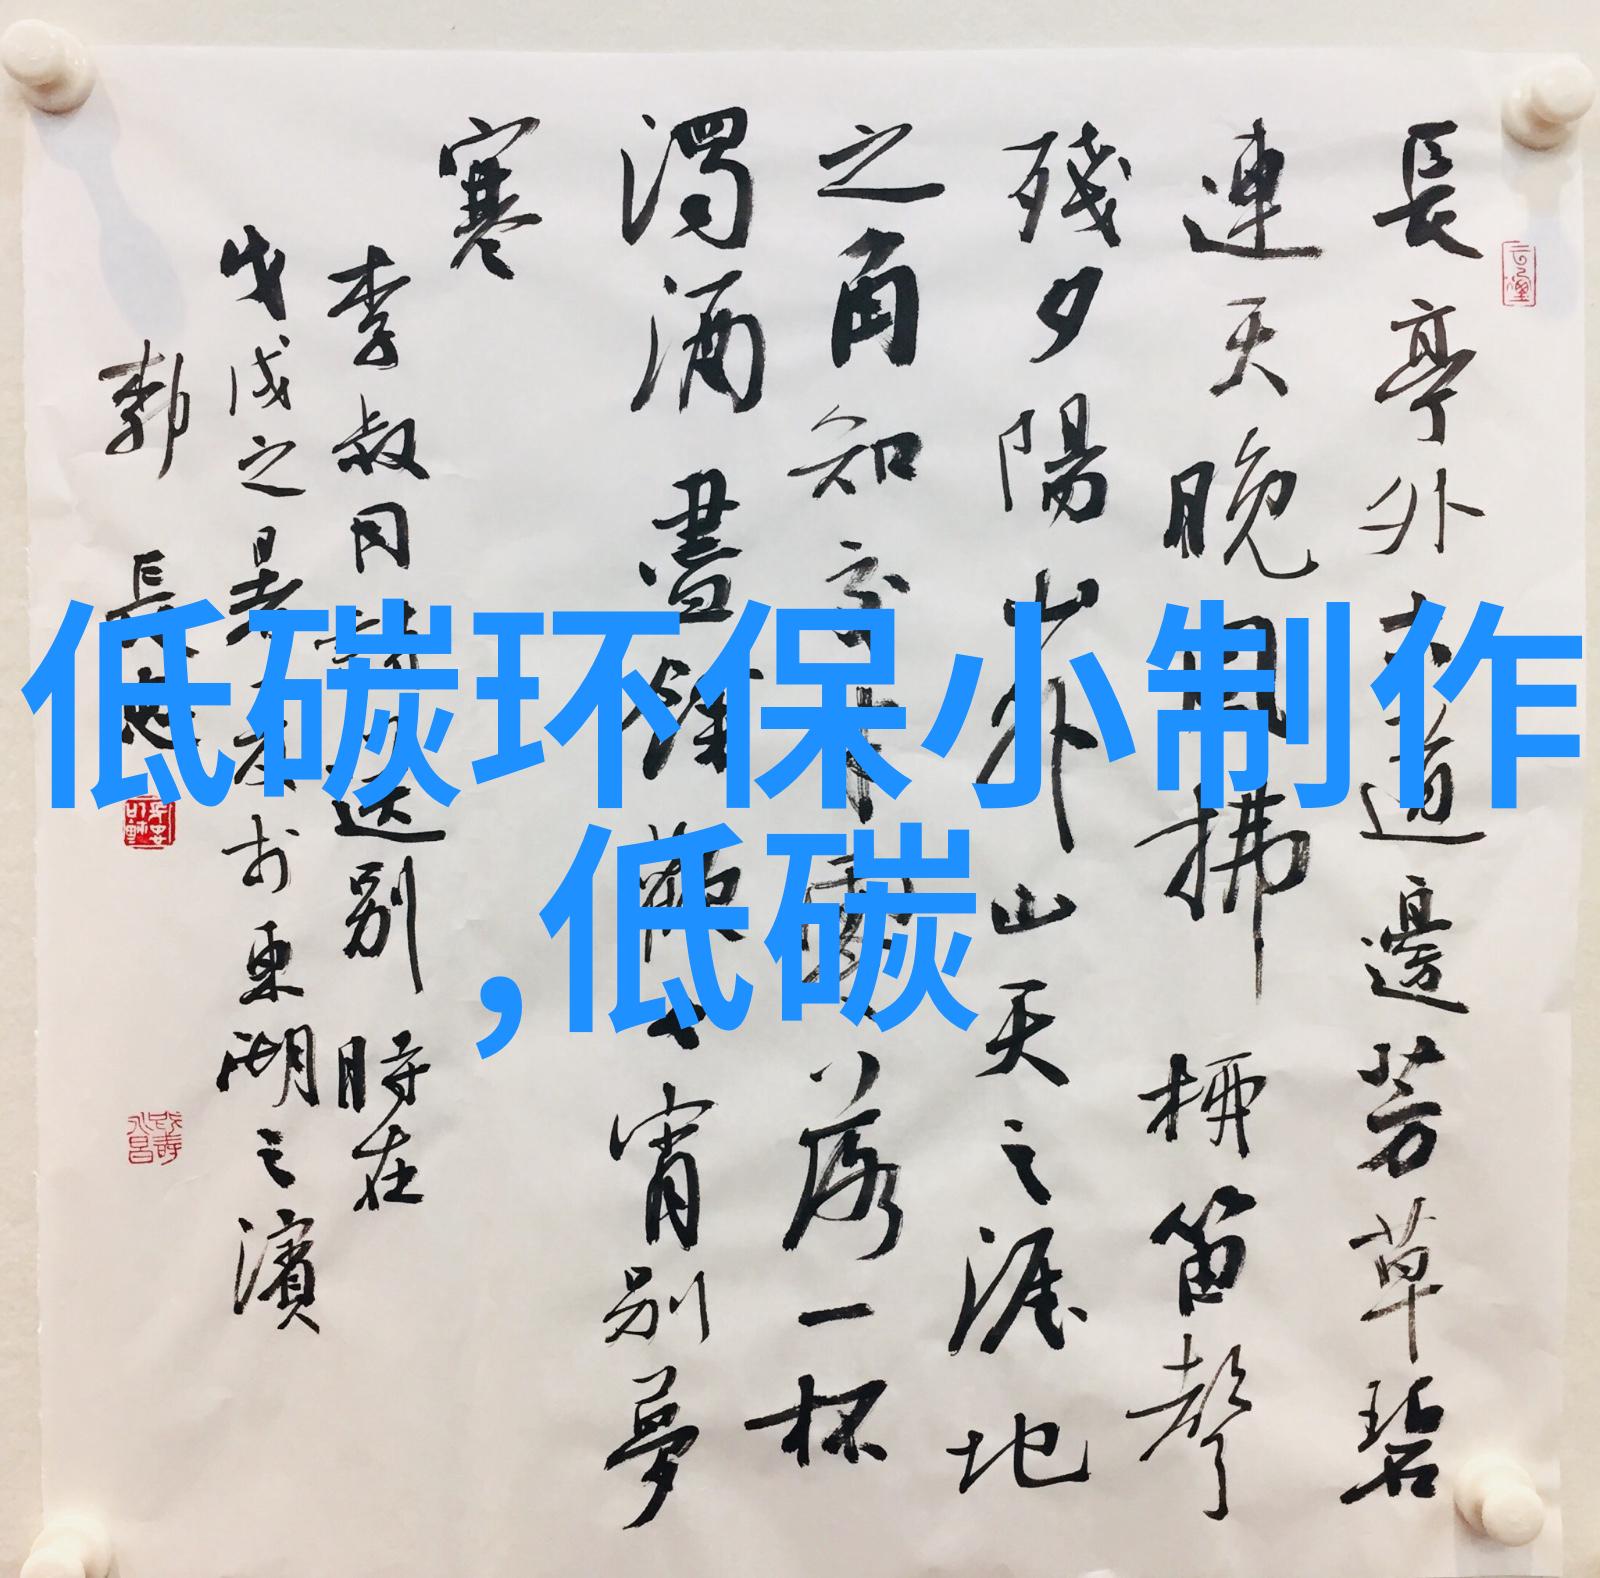 長亭外古道邊芳草碧
連天晚風拂柳笛聲
殘夕陽山外山天之涯地
之角知交半零落一杯
濁酒盡餘歡今宵別夢
寒
李叔同詩送別 時在
戊戌之暑於東湖之濱
長
低碳环保小制作
,低碳